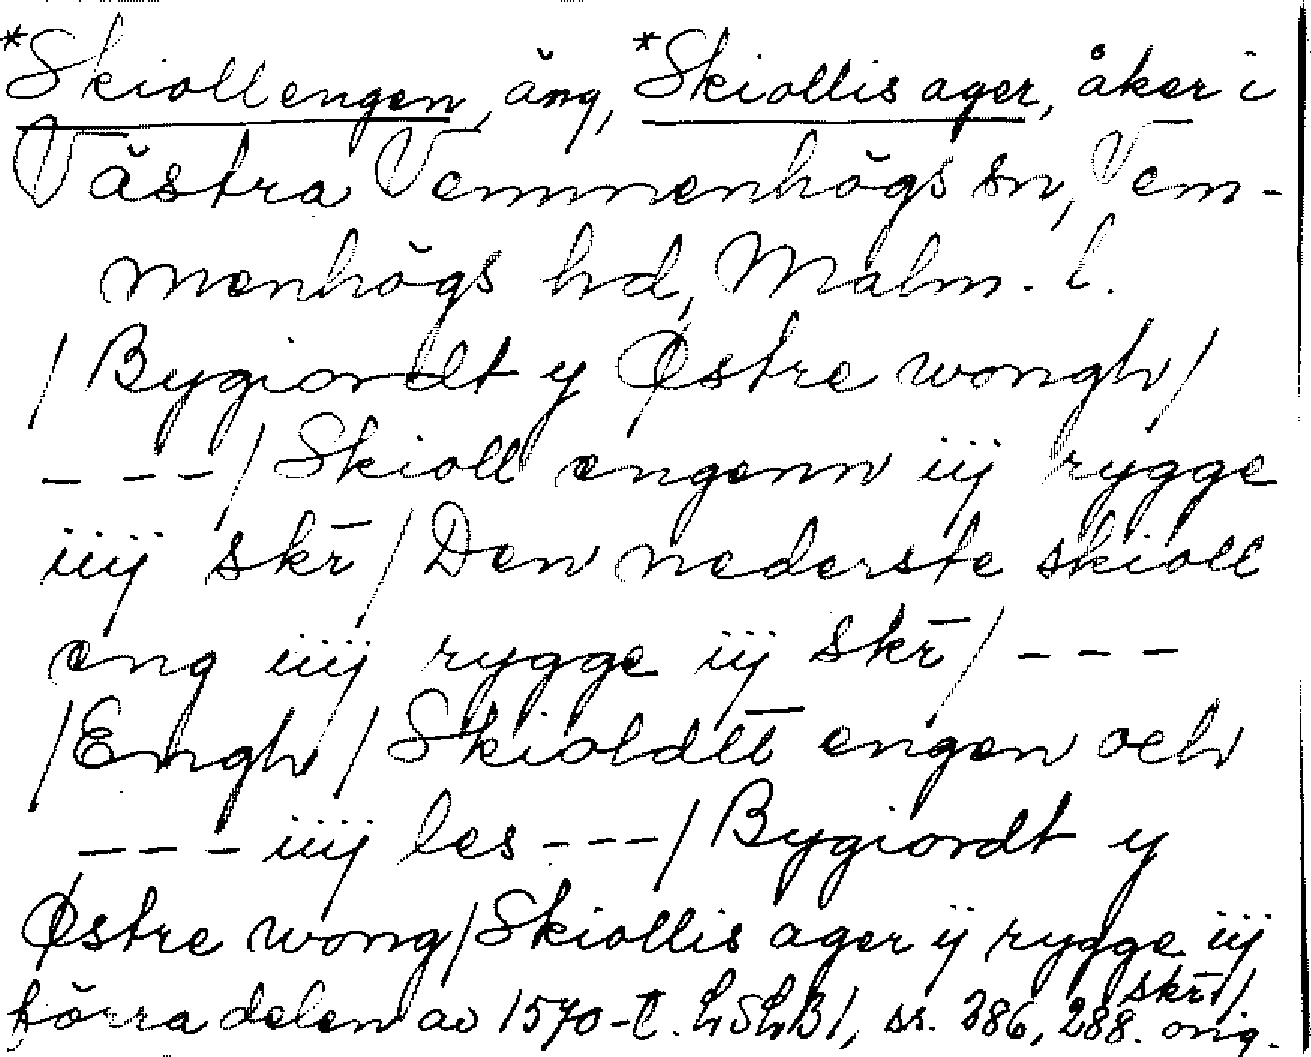 *Skiollengen, äng, *Skiollis ager, åker i
Västra Vemmenhögs sn, Vem-
menhögs hd, Malm. l.
/ Bygiordt y Østre wongh /
--- / Skioll engenn iij rygge
iiij skr̄ / Den nederste skioll
eng iiij rygge iij skr̄ / ---
/ Emgh / Skioldtt̄ engen och
--- iiij les --- / Bygiordt y
Østre wong / Skiollis ager ij rygge iij
skr̄ /
förra delen av 1570-t. LSLB1, s. 286, 288. orig.